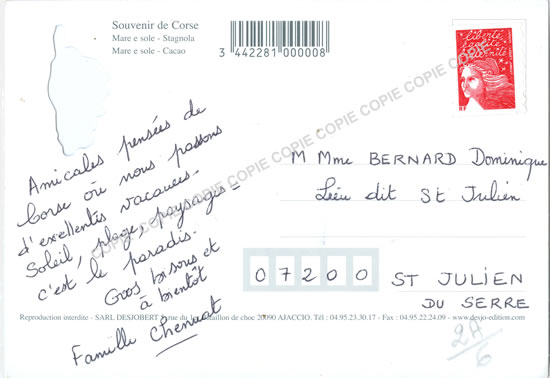 Souvenir de Corse
Mare e sole - Stagnola
Mare e sole - Cacao
3 442281 000008
liberté
égalité
fraternité
RF
COPIE COPIE COPIE COPIE COPIE COPIE COPIE COPIE
Amicales pensées de
Corse où nous passons
d'excellentes vacances.
Soleil, plage, paysages -
c'est le paradis.
Gros bisous et
à bientôt
Famille Chenuat
M Mme BERNARD Dominique
Lieu dit St Julien
07200 ST JULIEN
DU SERRE
Reproduction interdite - SARL DESJOBERT rue du bataillon de choc 20090 AJACCIO. Tél : 04.95.23.30.17 - Fax : 04.95.22.24.09 - www.desjo-edition.com
2A
6